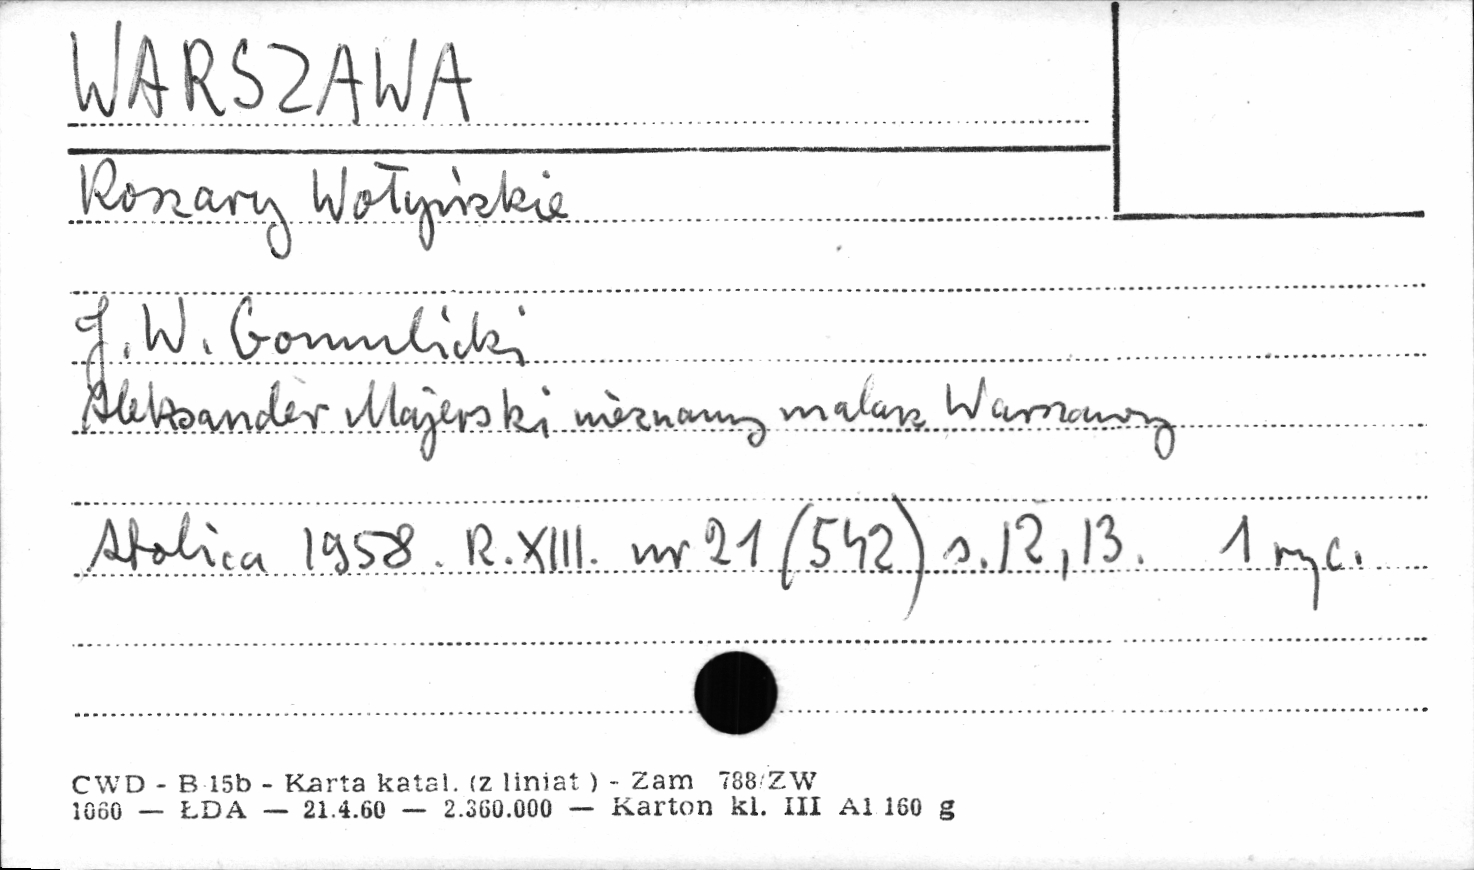 WARSZAWA
Koszary Wołyńskie
J. W. Gomulicki
Aleksander Majerski nieznany malarz Warszawy
Stolica 1958. R. XIII. nr 21 (542) s. 12, 13. 1 ryc.
CWD - B-15b - Karta katal. (z liniat ) - Zam 788/ZW
1060 — ŁDA — 21.4.60 — 2.360.000 — Karton kl. III A1 160 g